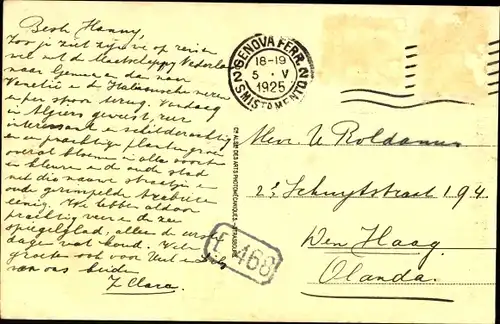 Beste Hanny,
Zoo je ziet zijn we op reis en
wel met de Maatschappy Nederland
naar Genua en dan naar
Venetië en de Italiaansche meren
en per spoor terug. Vandaag
in Algiers geweest, zeer
interessant en schilderachtig
en een prachtige plantengroei
overal bloemen in alle
en kleuren en de oude stad
met die nauwe straatjes en
oude gerimpelde Arabieren
eenig. We hebben aldoor
prachtig weer en de zee
spiegelglad, alleen de eerste
dagen wat koud. Vele
groeten ook voor
van ons beiden
Clara.
GENOVA FERR.
18-19
5 · V
1925
SMISTAMENTO
Mevr. U Roldanus
2e Schuytstraat 194
Den Haag
Olanda.
f 466